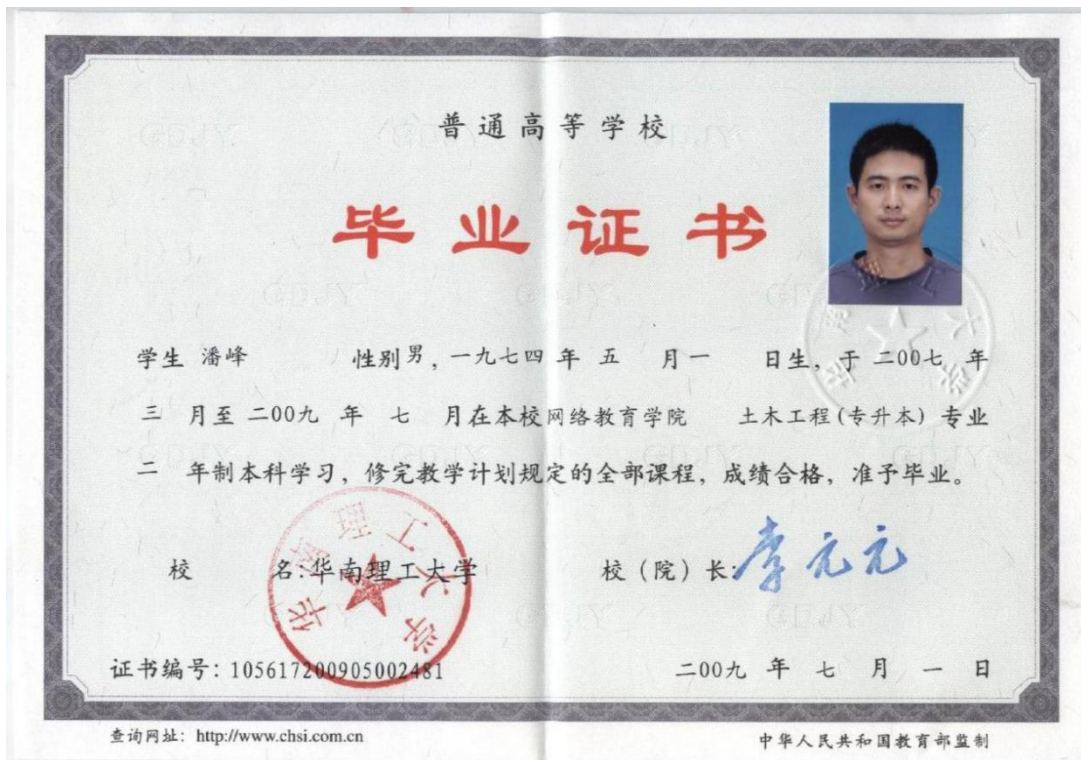 普通高等学校
毕业证书
学生 潘峰 性别男，一九七四 年 五 月一 日生，于 二00七 年
三 月至 二00九 年 七 月在本校网络教育学院 土木工程(专升本) 专业
二 年制本科学习，修完教学计划规定的全部课程，成绩合格，准予毕业。
华南理工大学
校 名:华南理工大学 校（院）长:李元元
证书编号：105617200905002481 二00九 年 七 月 一 日
查询网址：http://www.chsi.com.cn 中华人民共和国教育部监制